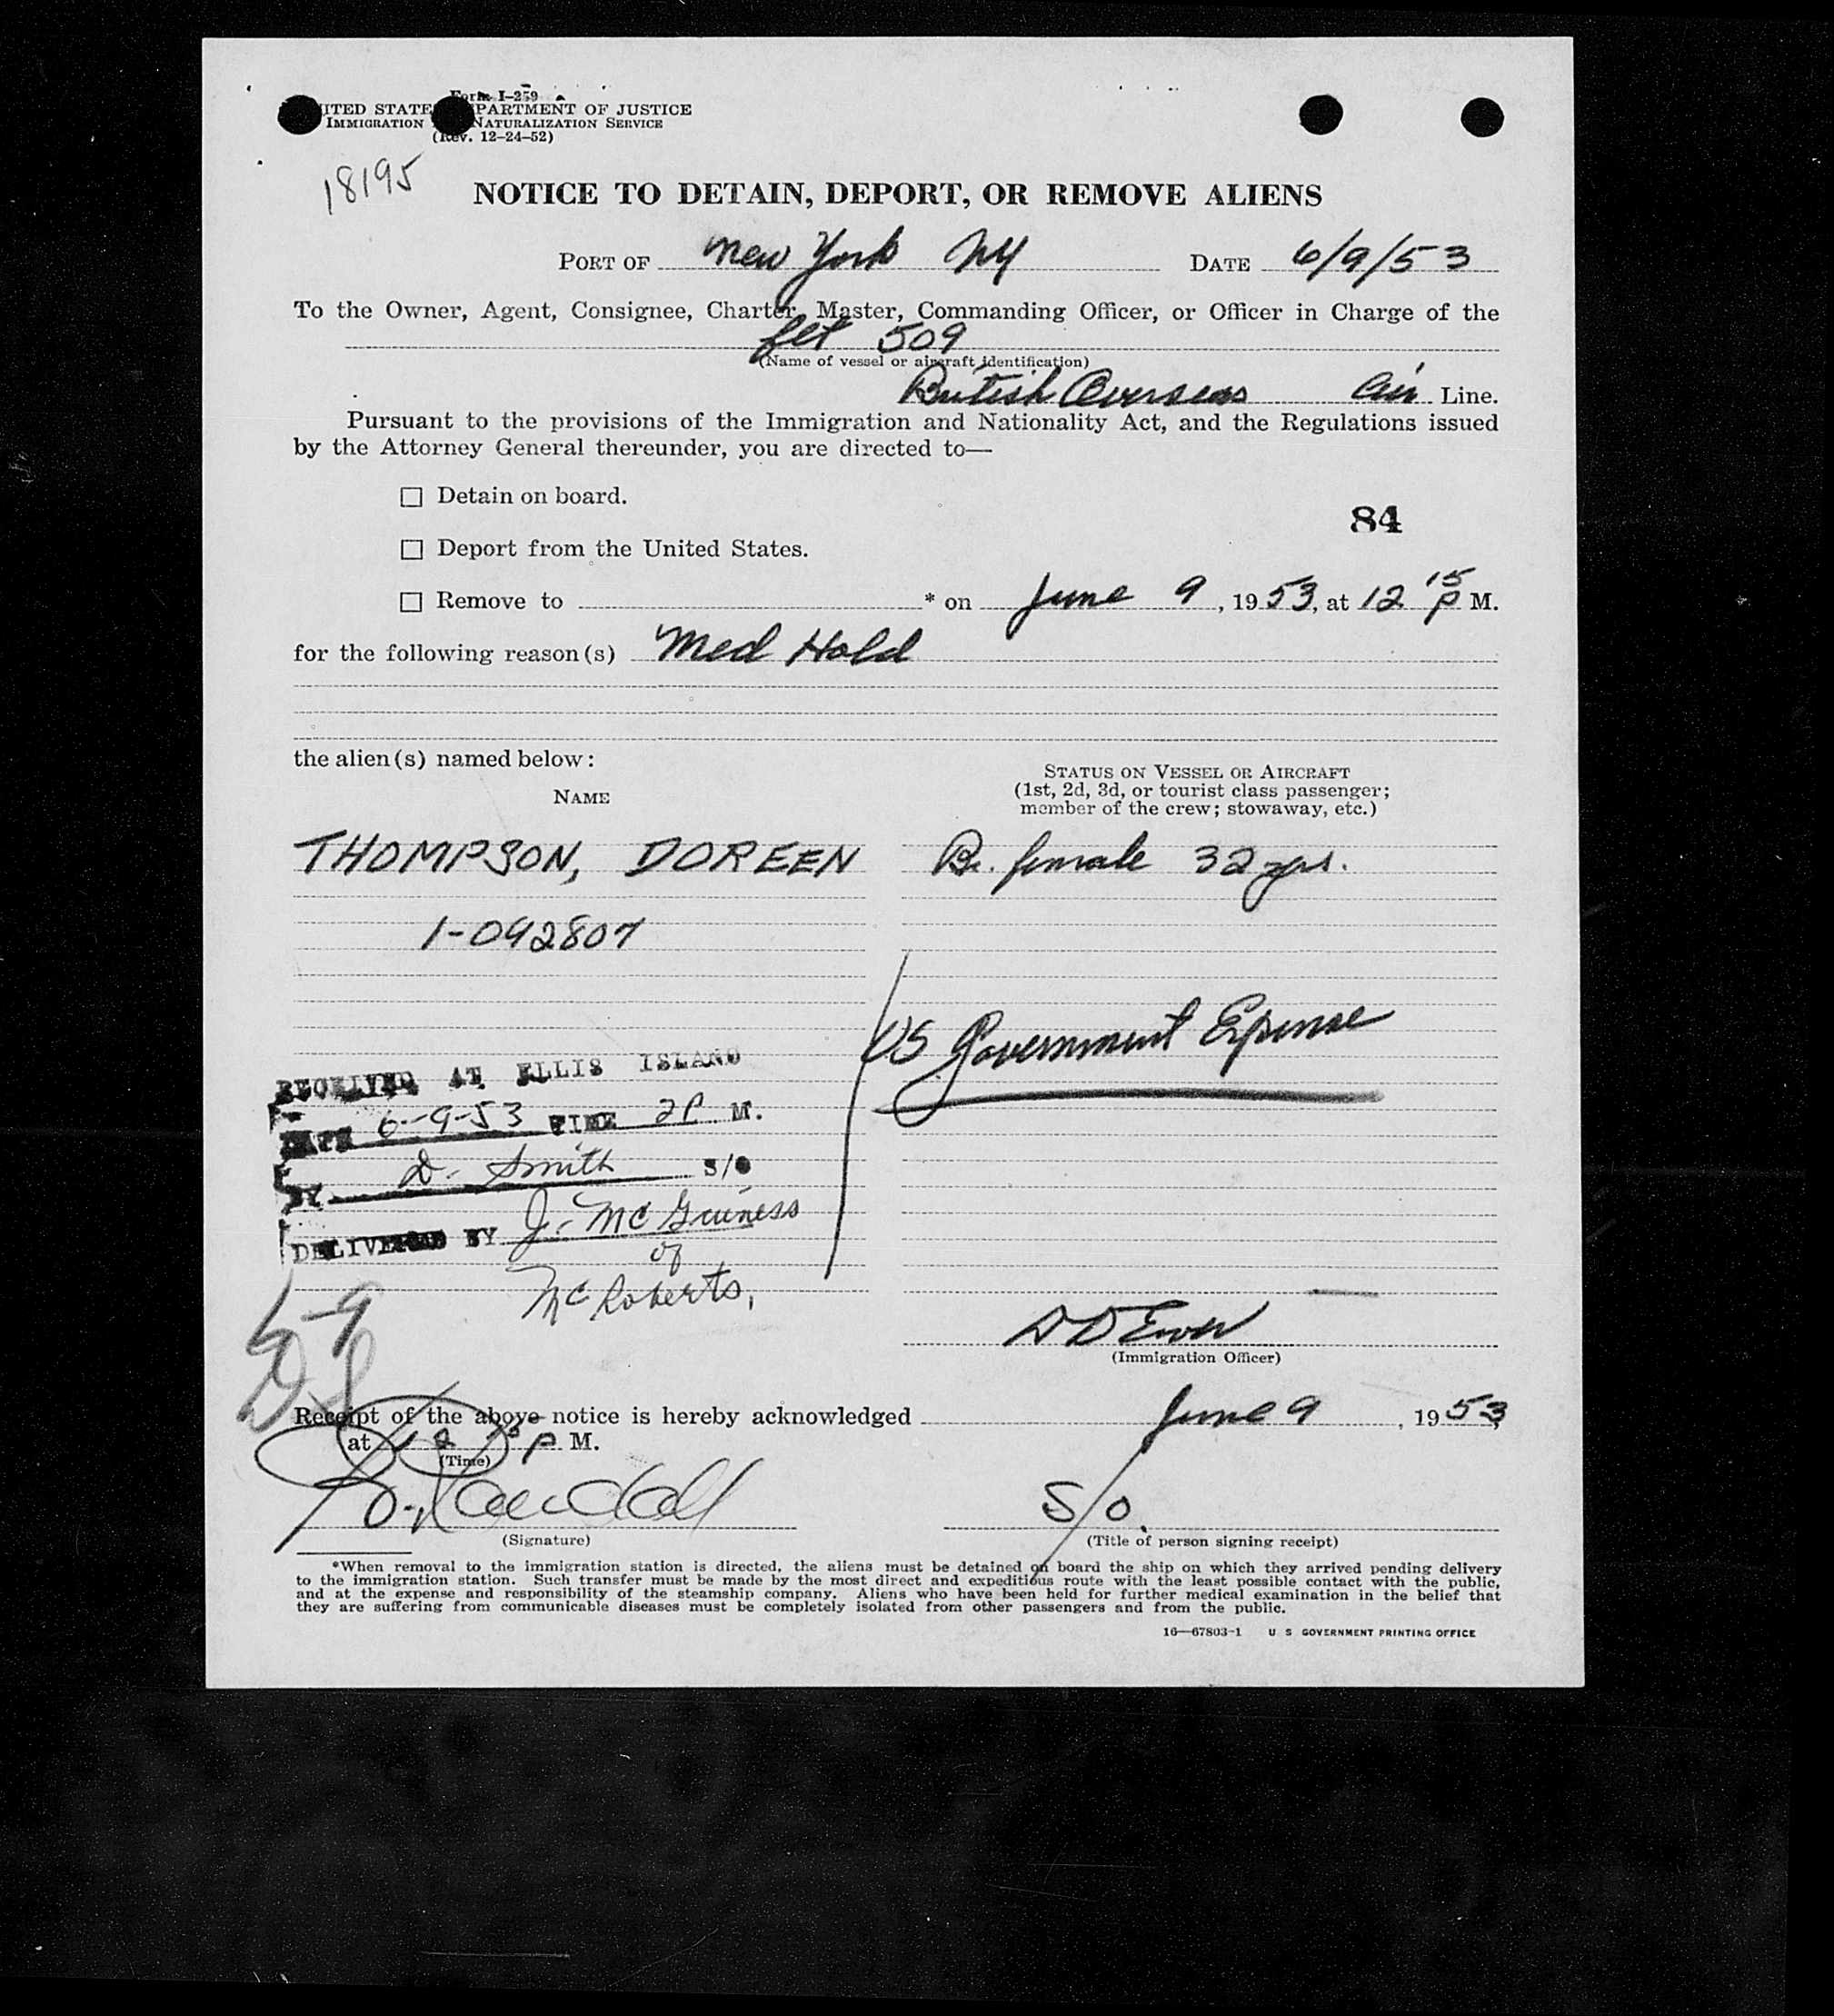 Form I-259
UNITED STATES DEPARTMENT OF JUSTICE
IMMIGRATION NATURALIZATION SERVICE
(Rev. 12-24-52)
18195
NOTICE TO DETAIN, DEPORT, OR REMOVE ALIENS
PORT OF New York NY DATE 6/9/53
To the Owner, Agent, Consignee, Charter, Master, Commanding Officer, or Officer in Charge of the
flt 509
(Name of vessel or aircraft identification)
British Overseas Air Line.
Pursuant to the provisions of the Immigration and Nationality Act, and the Regulations issued
by the Attorney General thereunder, you are directed to—
☐ Detain on board.
84
☐ Deport from the United States.
☐ Remove to * on June 9, 1953, at 12 15 P M.
for the following reason(s) Med Hold
the alien(s) named below:
NAME
STATUS ON VESSEL OR AIRCRAFT
(1st, 2d, 3d, or tourist class passenger;
member of the crew; stowaway, etc.)
THOMPSON, DOREEN Br. female 32 yrs.
1-092807
US Government Expense
RECEIVED AT ELLIS ISLAND
DATE 6-9-53 TIME 2P. M.
BY D. Smith S/O
DELIVERED BY J. McGuiness
of
McRoberts,
6-9
DS
(Immigration Officer)
Receipt of the above notice is hereby acknowledged June 9, 1953,
at 12 P M.
(Time)
S/O.
(Signature)
(Title of person signing receipt)
*When removal to the immigration station is directed, the aliens must be detained on board the ship on which they arrived pending delivery
to the immigration station. Such transfer must be made by the most direct and expeditious route with the least possible contact with the public,
and at the expense and responsibility of the steamship company. Aliens who have been held for further medical examination in the belief that
they are suffering from communicable diseases must be completely isolated from other passengers and from the public.
16—67803-1 U S GOVERNMENT PRINTING OFFICE